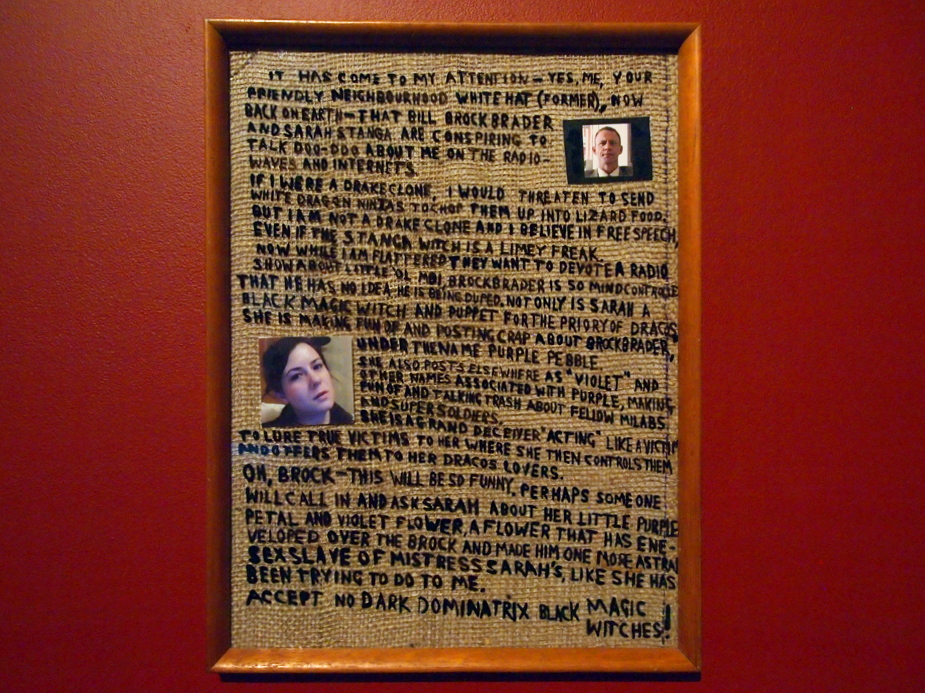 IT HAS COME TO MY ATTENTION – YES, ME, YOUR
FRIENDLY NEIGHBOURHOOD WHITE HAT (FORMER), NOW
BACK ON EARTH – THAT BILL BROCKBRADER
AND SARAH STANGA ARE CONSPIRING TO
TALK DOO-DOO ABOUT ME ON THE RADIO-
WAVES AND INTERNETS.
IF I WERE A DRAKE CLONE, I WOULD THREATEN TO SEND
WHITE DRAGON NINJAS TO CHOP THEM UP INTO LIZARD FOOD.
BUT I AM NOT A DRAKE CLONE AND I BELIEVE IN FREE SPEECH,
EVEN IF THE STANGA WITCH IS A LIMEY FREAK.
NOW WHILE I AM FLATTERED THEY WANT TO DEVOTE A RADIO
SHOW ABOUT LITTLE OL' MOI, BROCKBRADER IS SO MINDCONTROLLED
THAT HE HAS NO IDEA HE IS BEING DUPED. NOT ONLY IS SARAH A
BLACK MAGIC WITCH AND PUPPET FOR THE PRIORY OF DRACOS,
SHE IS MAKING FUN OF AND POSTING CRAP ABOUT BROCKBRADER,
UNDER THE NAME PURPLE PEBBLE.
SHE ALSO POSTS ELSEWHERE AS "VIOLET" AND
OTHER NAMES ASSOCIATED WITH PURPLE, MAKING
FUN OF AND TALKING TRASH ABOUT FELLOW MILABS
AND SUPERSOLDIERS.
SHE IS A GRAND DECEIVER "ACTING" LIKE A VICTIM
TO LURE TRUE VICTIMS TO HER WHERE SHE THEN CONTROLS THEM
AND OFFERS THEM TO HER DRACOS LOVERS.
OH, BROCK – THIS WILL BE SO FUNNY. PERHAPS SOMEONE
WILL CALL IN AND ASK SARAH ABOUT HER LITTLE PURPLE
PETAL AND VIOLET FLOWER, A FLOWER THAT HAS ENE-
VELOPED OVER THE BROCK AND MADE HIM ONE MORE ASTRAL
SEX SLAVE OF MISTRESS SARAH'S, LIKE SHE HAS
BEEN TRYING TO DO TO ME.
ACCEPT NO DARK DOMINATRIX BLACK MAGIC
WITCHES!